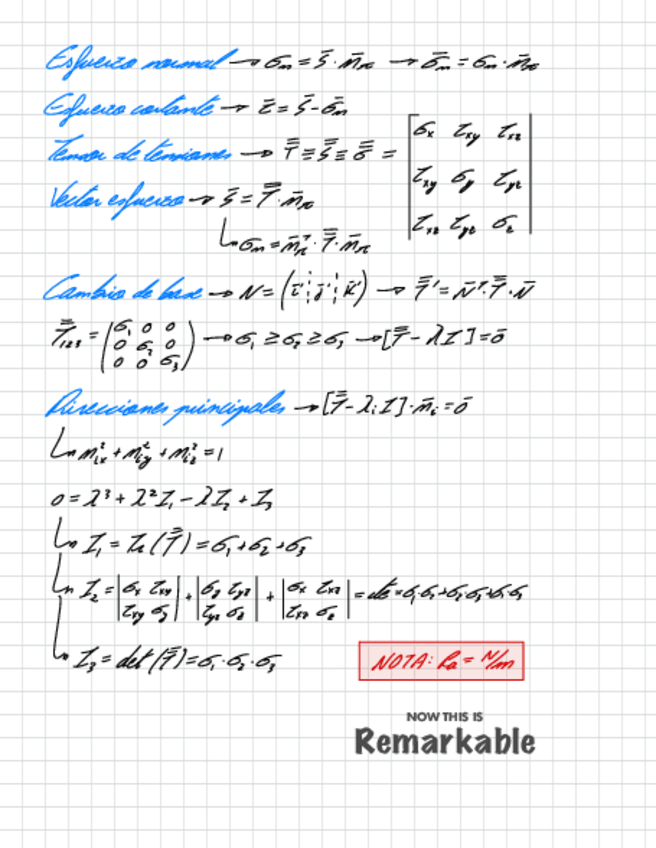 Esfuerzo normal → σn = s̄·n̄π → σ̄n = σn·n̄π
Esfuerzo cortante → τ̄ = s̄ - σ̄n
Tensor de tensiones → T̿ ≡ s̿ ≡ σ̿ = | σx τxy τxz |
| τxy σy τyz |
| τxz τyz σz |
Vector esfuerzo → s̄ = T̿·n̄π
↳ σn = n̄πᵀ·T̿·n̄π
Cambio de base → N = (ī'¦j̄'¦k̄') → T̿' = N̄ᵀ·T̿·N̄
T̿123 = ( σ1 0 0 ) → σ1 ≥ σ2 ≥ σ3 → [T̿ - λI] = ō
( 0 σ2 0 )
( 0 0 σ3 )
Direcciones principales → [T̿ - λiI]·n̄i = ō
↳ nix² + niy² + niz² = 1
0 = λ³ + λ²I1 - λI2 + I3
↳ I1 = Tr(T̿) = σ1 + σ2 + σ3
↳ I2 = |σx τxy| + |σy τyz| + |σx τxz| = cte = σ1·σ2 + σ2·σ3 + σ1·σ3
|τxy σy| |τyz σz| |τxz σz|
↳ I3 = det(T̿) = σ1·σ2·σ3
NOTA: Pa = N/m
NOW THIS IS
Remarkable